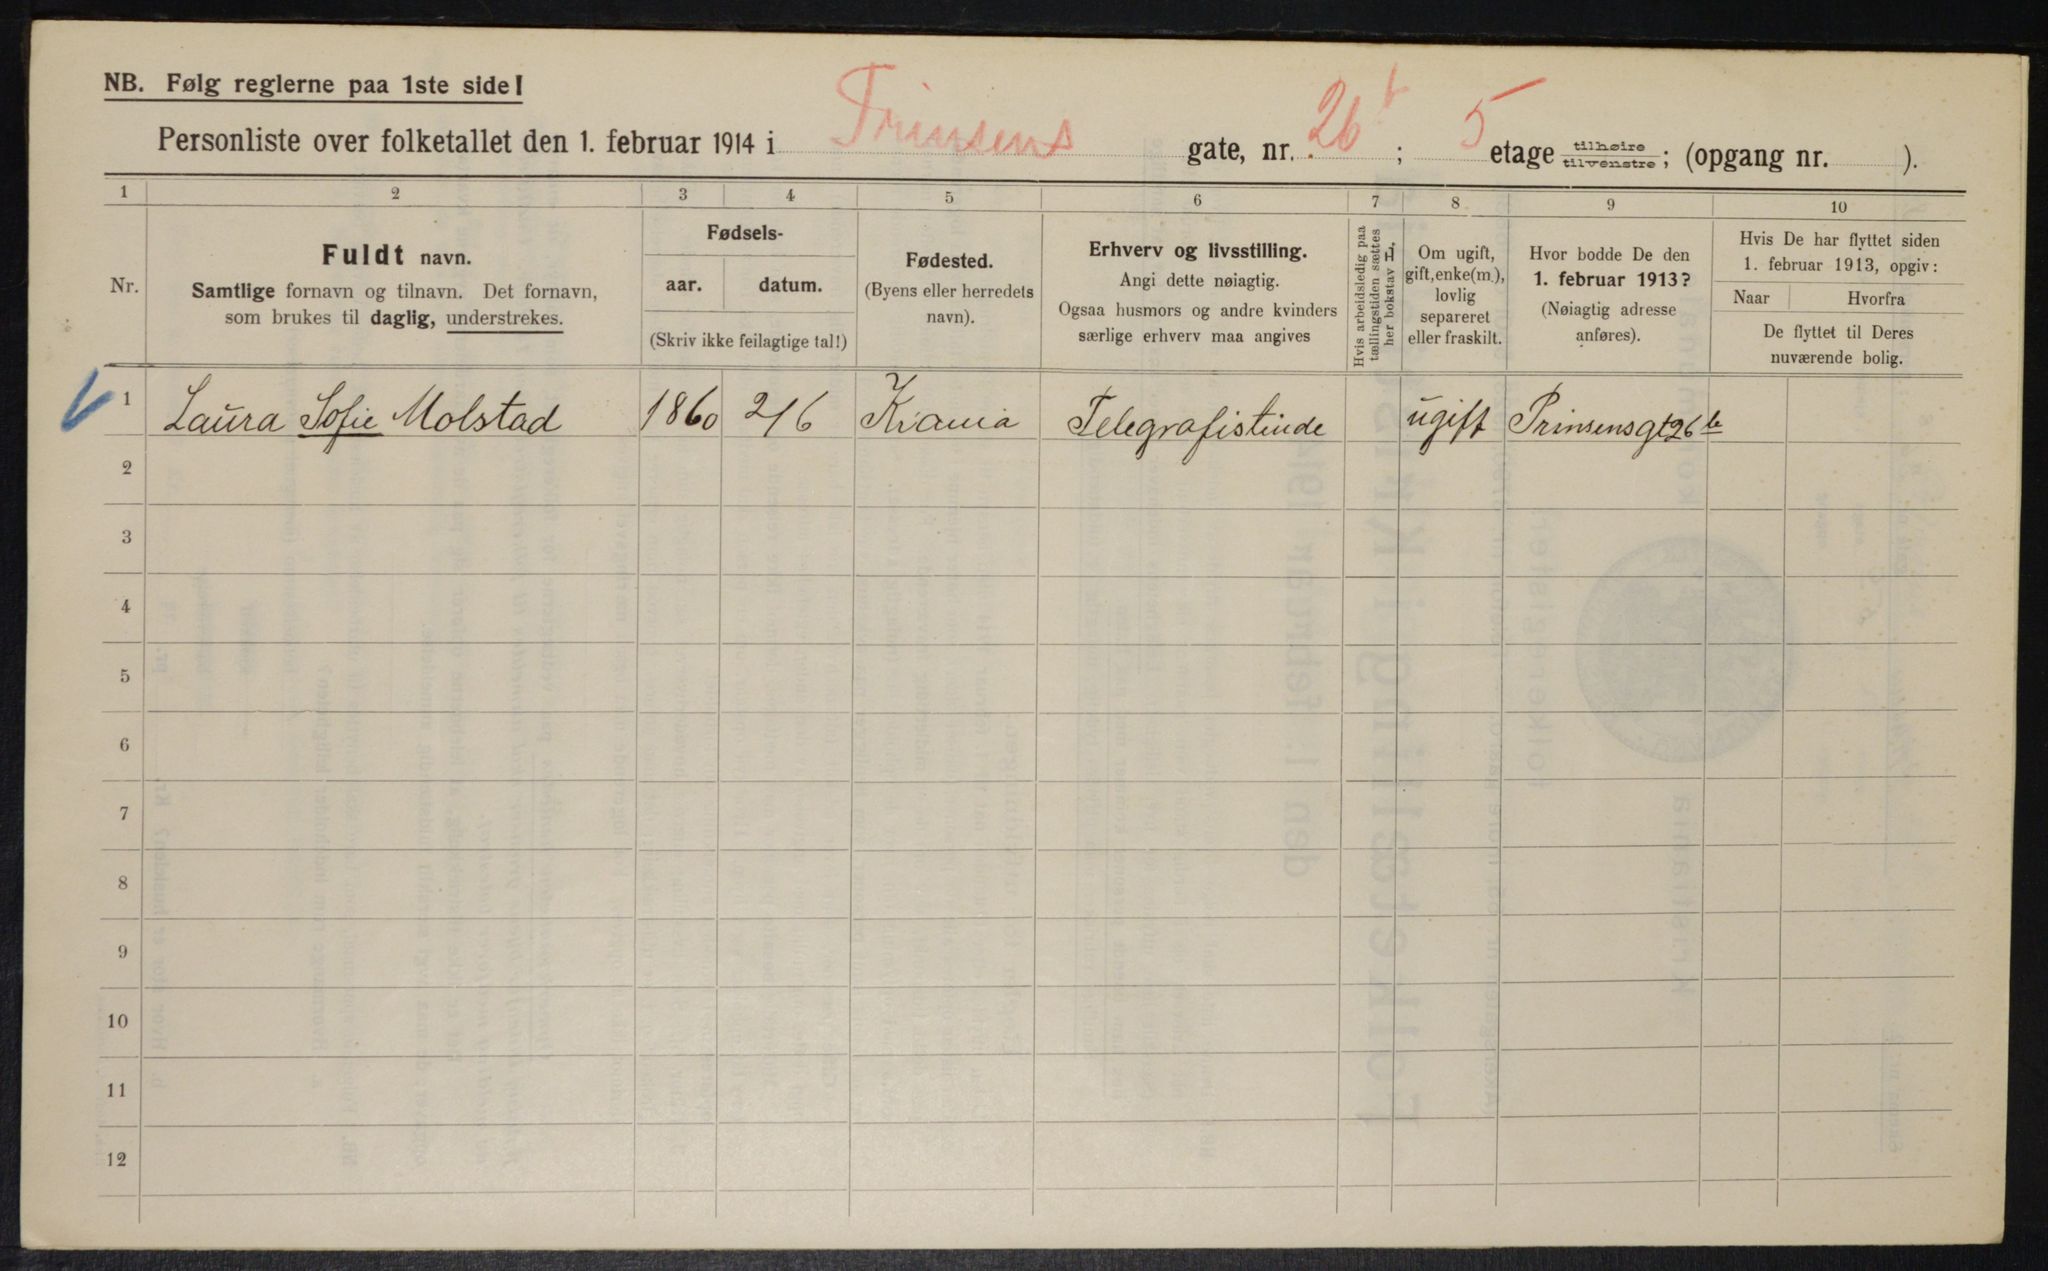 NB. Følg reglerne paa 1ste side!
Personliste over folketallet den 1. februar 1914 i Prinsens gate, nr. 26 b ; 5 etage tilhøire/tilvenstre; (opgang nr. ).
1 2 3 4 5 6 7 8 9 10
Nr.
Fuldt navn.
Samtlige fornavn og tilnavn. Det fornavn,
som brukes til daglig, understrekes.
Fødsels-
aar. datum.
(Skriv ikke feilagtige tal!)
Fødested.
(Byens eller herredets
navn).
Erhverv og livsstilling.
Angi dette nøiagtig.
Ogsaa husmors og andre kvinders
særlige erhverv maa angives
Hvis arbeidsledig paa
tællingstiden sættes
her bokstav L.
Om ugift,
gift, enke(m.),
lovlig
separeret
eller fraskilt.
Hvor bodde De den
1. februar 1913?
(Nøiagtig adresse
anføres).
Hvis De har flyttet siden
1. februar 1913, opgiv:
Naar Hvorfra
De flyttet til Deres
nuværende bolig.
1 Laura Sofie Molstad 1860 2/6 Kiania Telegrafistinde ugift Prinsensgt 26 b
2
3
4
5
6
7
8
9
10
11
12